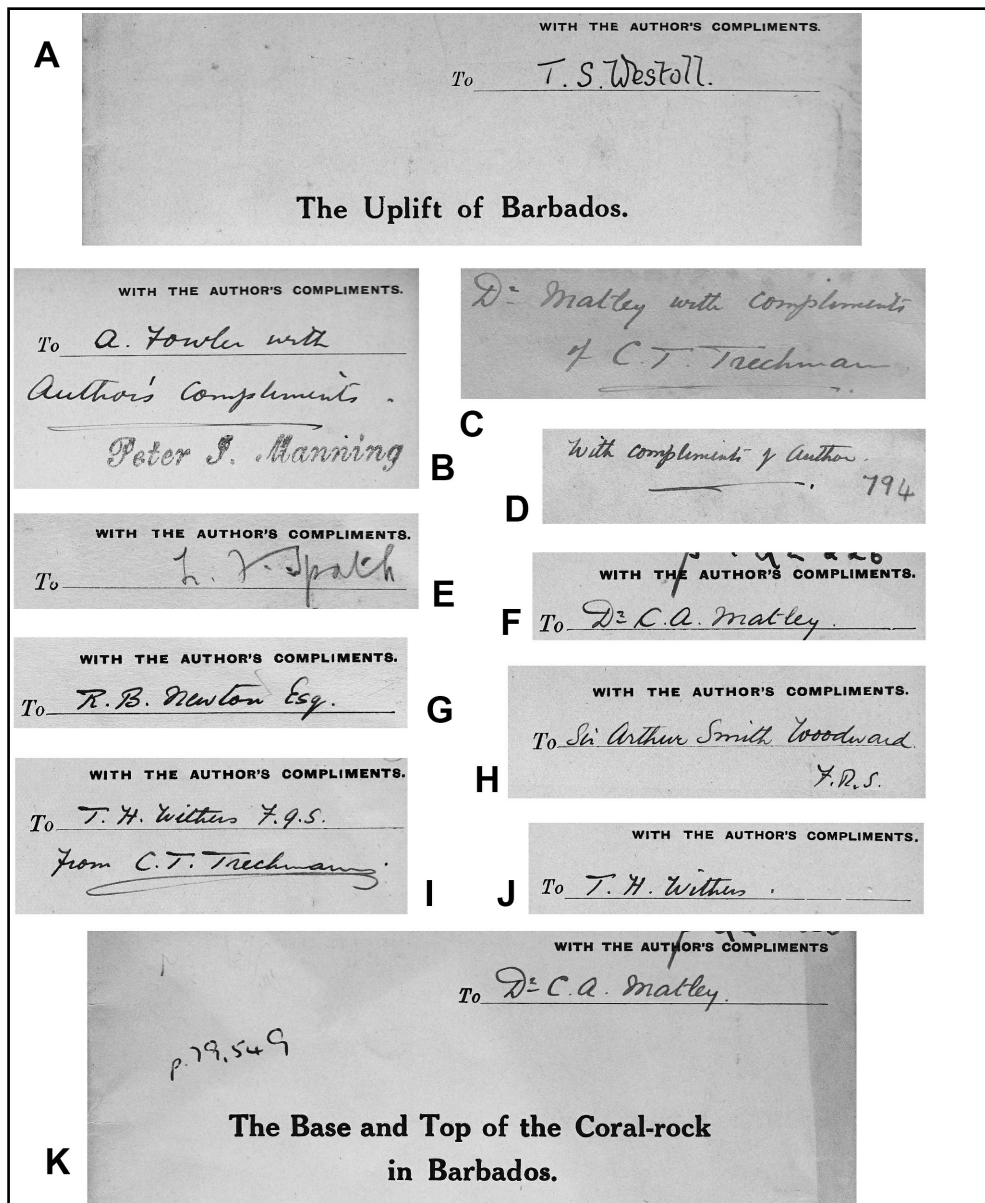 A
WITH THE AUTHOR'S COMPLIMENTS.
To T. S. Westoll.
The Uplift of Barbados.
B
WITH THE AUTHOR'S COMPLIMENTS.
To A. Fowler with
Author's Compliments.
Peter I. Manning
C
Dr Matley with compliments
of C. T. Trechmann
D
With compliments of Author.
794
E
WITH THE AUTHOR'S COMPLIMENTS.
To L. F. Spath
F
WITH THE AUTHOR'S COMPLIMENTS.
To Dr C. A. Matley.
G
WITH THE AUTHOR'S COMPLIMENTS.
To R. B. Newton Esq.
H
WITH THE AUTHOR'S COMPLIMENTS.
To Sir Arthur Smith Woodward
F.R.S.
I
WITH THE AUTHOR'S COMPLIMENTS.
To T. H. Withers F.G.S.
from C. T. Trechmann
J
WITH THE AUTHOR'S COMPLIMENTS.
To T. H. Withers.
K
WITH THE AUTHOR'S COMPLIMENTS
To Dr C. A. Matley.
p.79,549
The Base and Top of the Coral-rock
in Barbados.